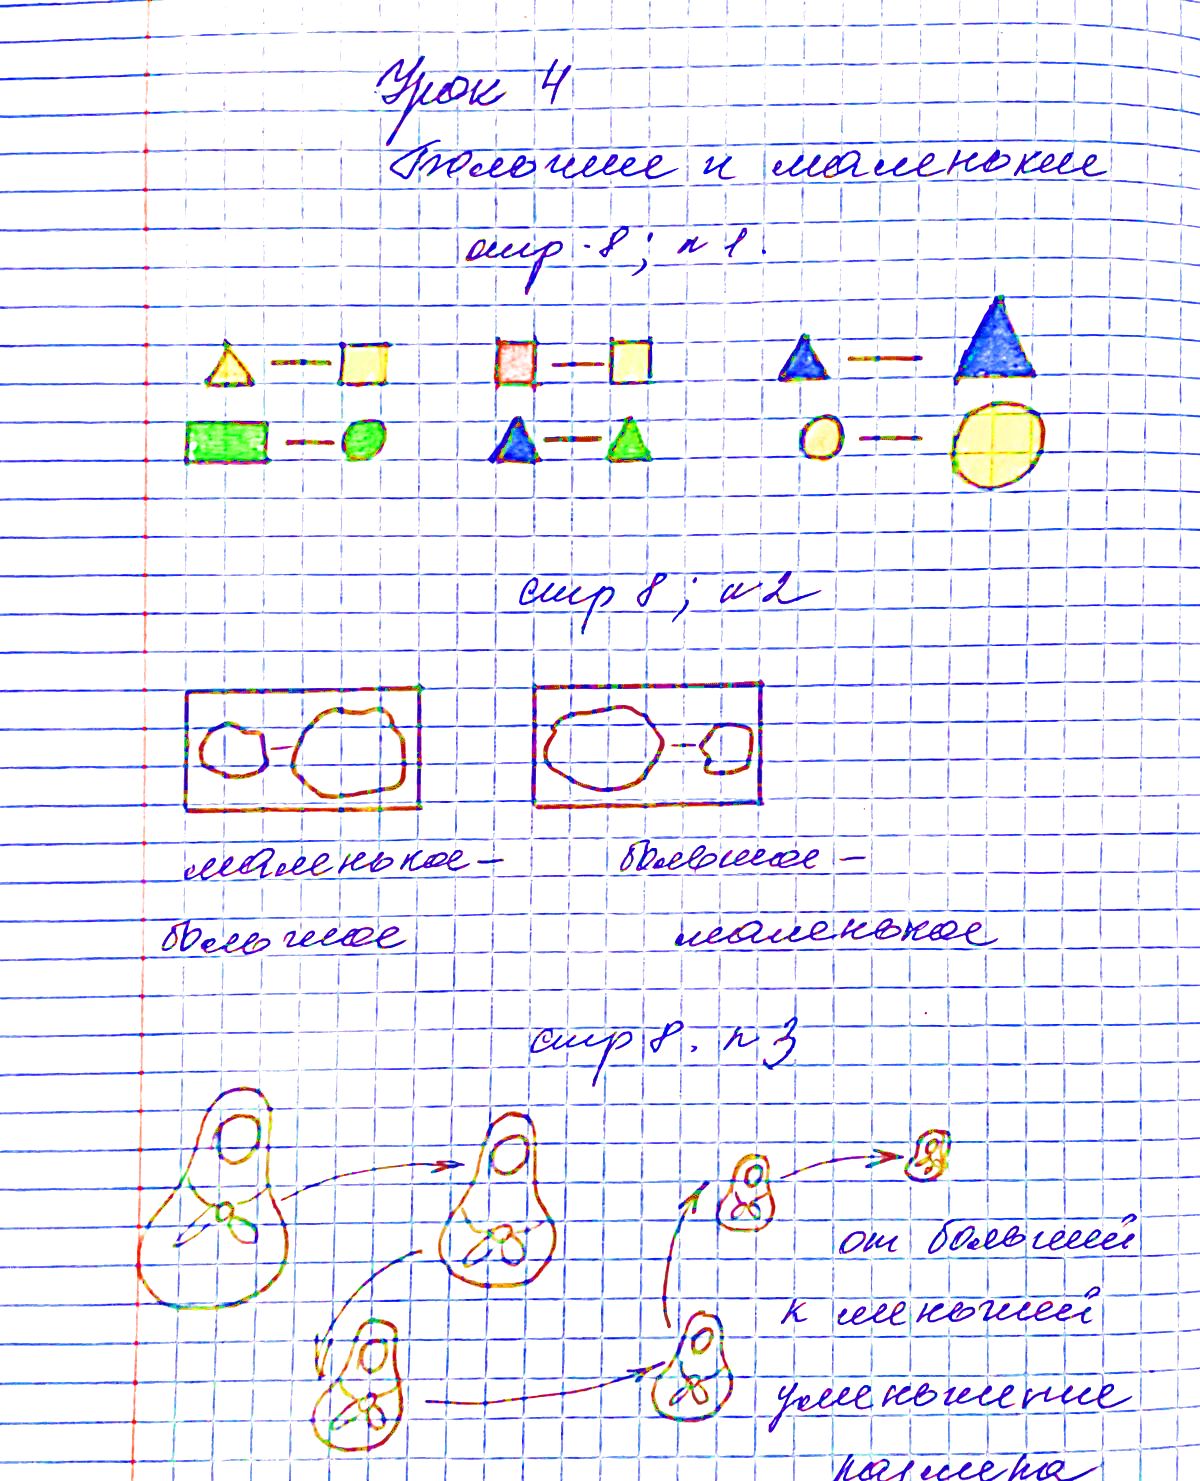 Урок 4
Большие и маленькие
стр. 8; n 1.
стр 8; n 2
маленькое – большое –
большое маленькое
стр 8. n 3
от большей
к меньшей
уменьшение
размера